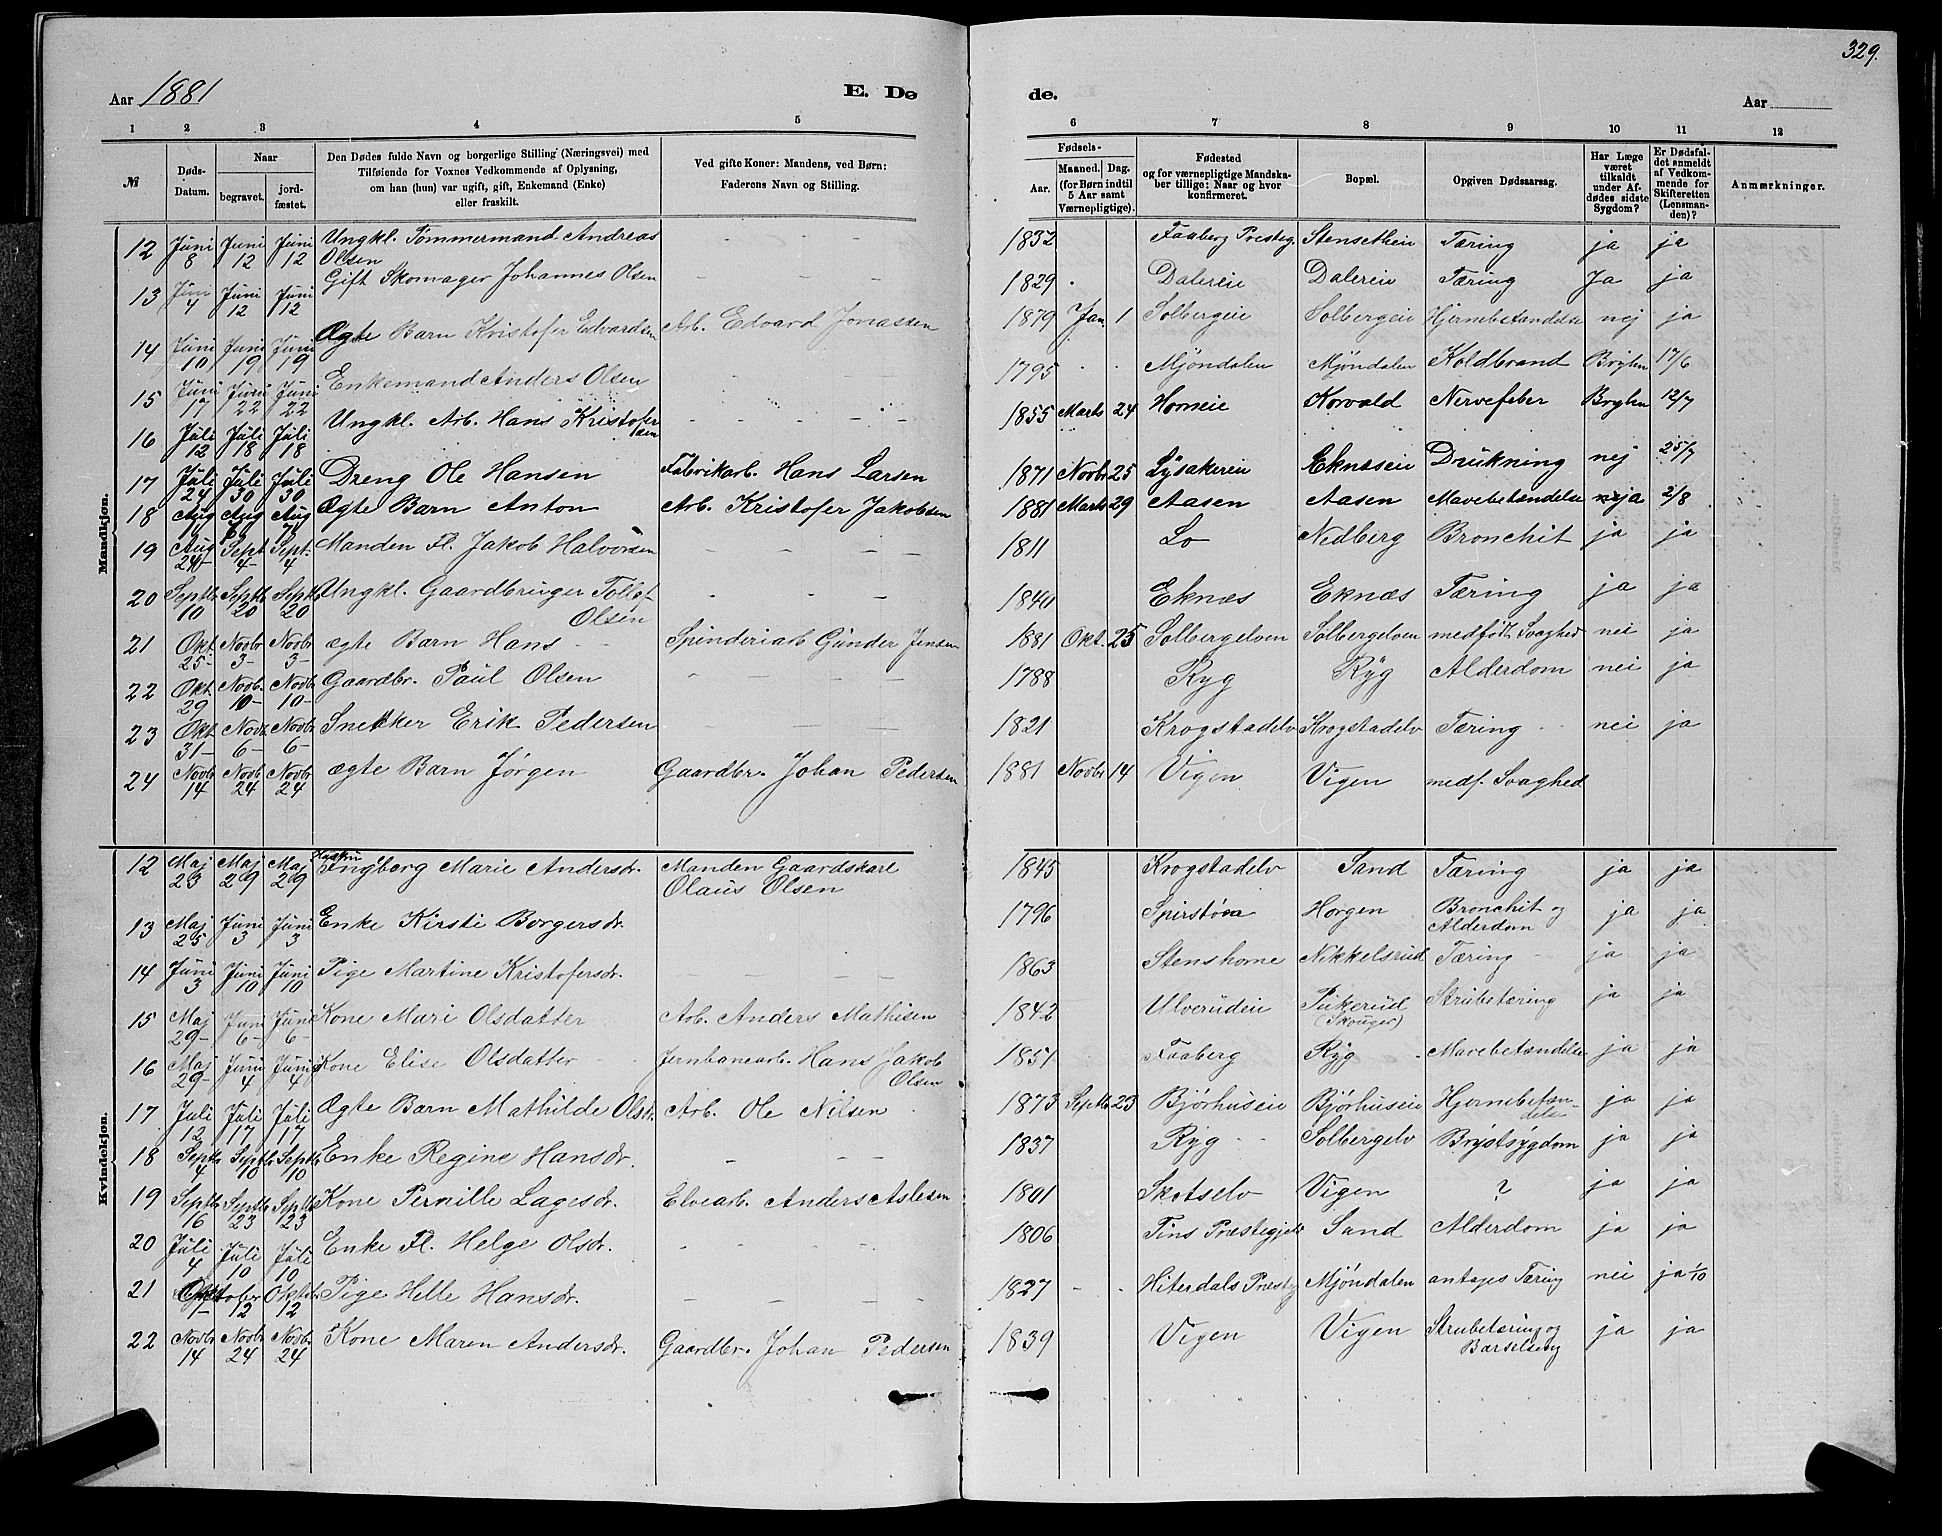 329.
Aar 1881
E. Dø
de.
Aar
1 2 3 4 5
6 7 8 9 10 11 12
№ | Døds-Datum. | Naar begravet. | jordfæstet. | Den Dødes fulde Navn og borgerlige Stilling (Næringsvei) med Tilføiende for Voxnes Vedkommende af Oplysning, om han (hun) var ugift, gift, Enkemand (Enke) eller fraskilt. | Ved gifte Koner: Mandens, ved Børn: Faderens Navn og Stilling.
Fødsels- Aar. | Maaned. Dag. (for Børn indtil 5 Aar samt Værnepligtige). | Fødested og for værnepligtige Mandskaber tillige: Naar og hvor konfirmeret. | Bopæl. | Opgiven Dødsaarsag. | Har Læge været tilkaldt under Afdødes sidste Sygdom? | Er Dødsfaldet anmeldt af Vedkommende for Skifteretten (Lensmanden)? | Anmærkninger.
Mandkjøn.
12 Juni 8 Juni 12 Juni 12 Ungkl. Tømmermand Andreas Olsen - - - 1832 Faaberg Presteg. Stensetheie Tæring ja ja
13 Juni 4 Juni 12 Juni 12 Gift Skomager Johannes Olsen - - - 1829 Dalereie Dalereie Tæring Ja ja
14 Juni 10 Juni 19 Juni 19 Ægte Barn Kristofer Edvardsen Arb. Edvard Jonassen 1879 Jan. 1 Solbergeie Solbergeie Hjernebetændelse nej ja
15 Juni 17 Juni 22 Juni 22 Enkemand Anders Olsen - - - 1795 Mjøndalen Mjøndalen Koldbrand Bryhn 17/6
16 Juli 12 Juli 18 Juli 18 Ungkl. Arb. Hans Kristofersen - - - 1855 Marts 24 Horneie Korvald Nervefeber Bryhn 12/7
17 Juli 24 Juli 30 Juli 30 Dreng Ole Hansen Fabrikarb. Hans Larsen 1871 Novbr 25 Lysakereie Eknæseie Drukning nej 25/7
18 Aug Aug Aug 7 Ægte Barn Anton Arb. Kristofer Jakobsen 1881 Marts 29 Aasen Aasen Mavebetændelse ja 2/8
19 Aug 24 Sept 4 Sept. 4 Manden Fl. Jakob Halvorsen - - - 1811 Lo Nedberg Bronchit ja ja
20 Septb 10 Septb 20 Septb 20 Ungkl. Gaardbruger Tollef Olsen - - - 1840 Eknæs Eknæs Tæring ja ja
21 Okt. 25 Novbr 3 Novbr 3 ægte Barn Hans Spinderiarb Gunder Jensen 1881 Okt. 25 Solbergelven Solbergelven medfødt Svaghed nei ja
22 Okt 29 Novbr. 10 Novbr 10 Gaardbr. Paul Olsen - - - 1788 Ryg Ryg Alderdom nei ja
23 Okt 31 Novbr 6 Novbr 6 Snekker Erik Pedersen - - - 1821 Krogstadelv Krogstadelv Tæring nei ja
24 Novbr 14 Novbr 24 Novbr 24 ægte Barn Jørgen Gaardbr. Johan Pedersen 1881 Novbr 14 Vigen Vigen medf. Svaghed
Kvindekjøn.
12 Maj 23 Maj 29 Maj 29 Ingberg Marie Andersdr. Manden Gaardskarl Olaus Olsen 1845 Krogstadelv Sand Tæring ja ja
13 Maj 25 Juni 3 Juni 3 Enke Kirsti Borgersdr. 1796 Horgen Bronchit og Alderdom ja ja
14 Juni 3 Juni 10 Juni 10 Pige Martine Kristofersdr. - - - 1863 Stenshorne Nikkelsrud Tæring ja ja
15 Maj 29 Juni 6 Juni 6 Kone Mari Olsdatter Arb. Anders Mathisen 1842 Ulverudeie Pukerud (Skouger) Strubetæring ja ja
16 Maj 29 Juni 4 Juni 4 Kone Elise Olsdatter Jernbanearb. Hans Jakob Olsen 1851 Faaberg Ryg Mavebetændelse ja ja
17 Juli 12 Juli 17 Juli 17 Ægte Barn Mathilde Olsdr. Arb. Ole Nilsen 1873 Septb 23 Bjørhuseie Bjørhuseie Hjernebetændelse ja ja
18 Septb 4 Septb 10 Septb 10 Enke Regine Hansdr. - - - 1837 Ryg Solbergelv Brystsygdom ja ja
19 Septb 16 Septb 23 Septb 23 Kone Pernille Lagesdr. Elvearb. Anders Aslesen 1801 Skotselv Vigen ? ja ja
20 Juli 4 Juli 10 Juli 10 Enke Fl. Helge Olsdr. - - - 1806 Tins Præstegjeld Sand Alderdom ja ja
21 Oktober 1 12 Oktbr 12 Pige Helle Hansdr. - - - 1827 Hiterdals Præstg Mjøndalen antages Tæring nei ja 1/10
22 Novbr 14 Novbr 24 Novbr. 24 Kone Maren Andersdr. Gaardbr. Johan Pedersen 1839 Vigen Vigen Strubetæring og Barselseng ja ja